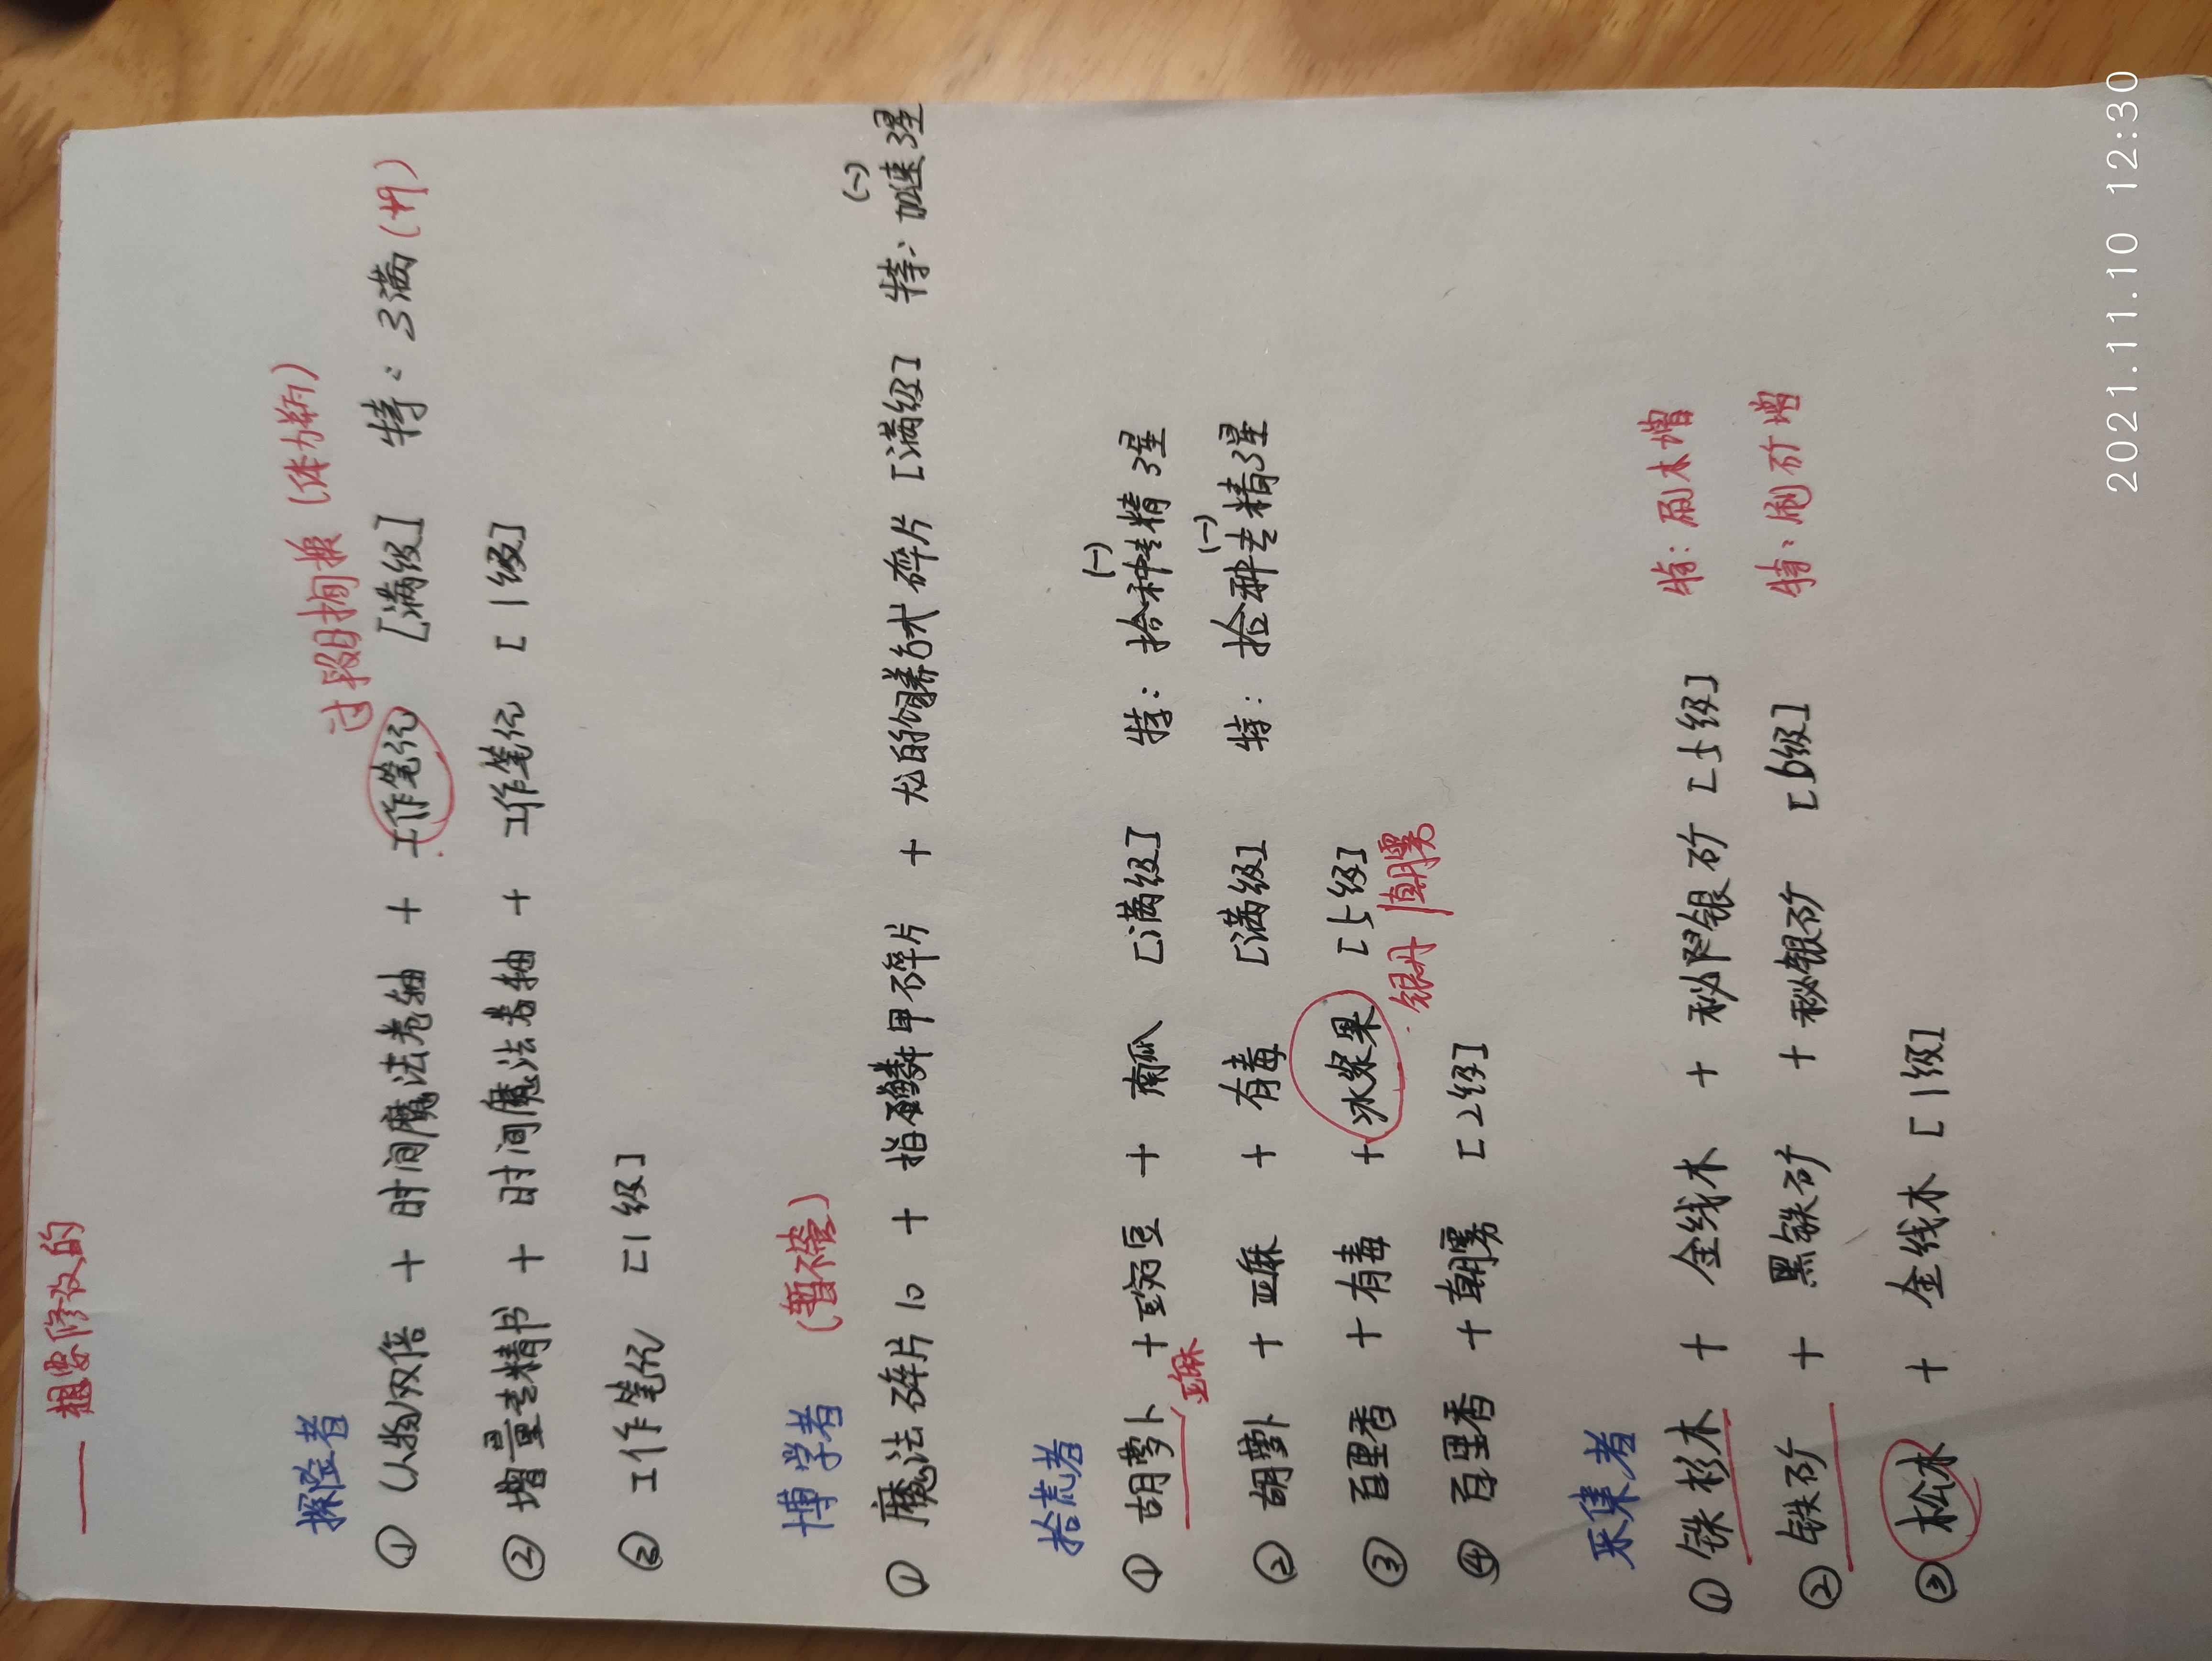 —— 想要修改的
探险者
过段时间换（体力瓶）
① 人物双倍 + 时间魔法卷轴 + 工作笔记 [满级] 特：3满(
② 增量专精书 + 时间魔法卷轴 + 工作笔记 [1级]
③ 工作笔记 [1级]
博学者 (暂不管)
① 魔法碎片10 + 指 鳞甲碎片 + 龙的饲养方式碎片 [满级] 特：加速3星
(一)
拾荒者
① 胡萝卜 + 豌豆 + 南瓜 [满级] 特：拾种专精3星
(一)
亚麻
② 胡萝卜 + 亚麻 + 有毒 [满级] 特：捡种专精3星
(一)
③ 百里香 + 有毒 + 冰浆果 [5级]
银丹 朝雾
④ 百里香 + 朝雾 [2级]
采集者
① 铁杉木 + 金线木 + 秘银矿 [5级] 特：刷木增
② 铁矿 + 黑铁矿 + 秘银矿 [6级] 特：刷矿增
③ 松木 + 金线木 [1级]
2021.11.10 12:30